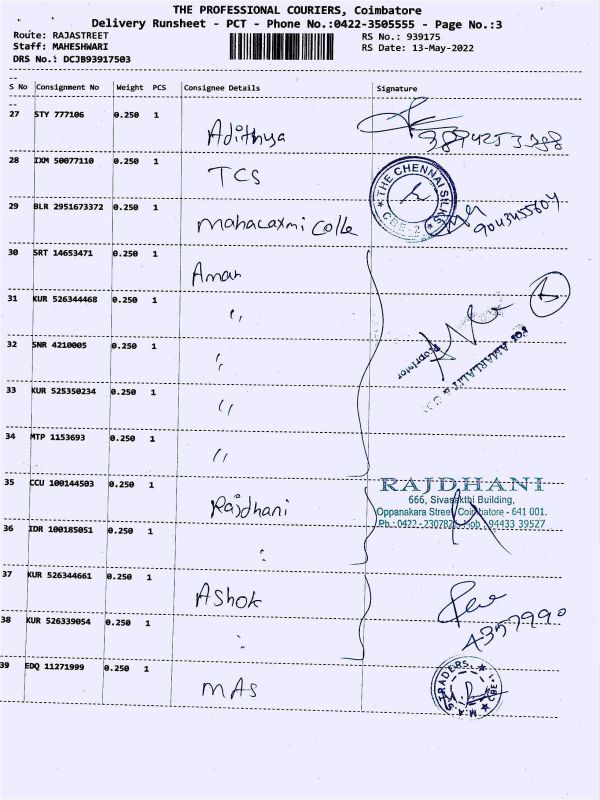 THE PROFESSIONAL COURIERS, Coimbatore
Delivery Runsheet - PCT - Phone No.:0422-3505555 - Page No.:3
Route: RAJASTREET RS No.: 939175
Staff: MAHESHWARI RS Date: 13-May-2022
DRS No.: DCJB93917503
S No Consignment No Weight PCS Consignee Details Signature
27 STY 777106 0.250 1 Adithya
28 IXM 50077110 0.250 1 TCS THE CHENNAI SILKS CBE-2
29 BLR 2951673372 0.250 1 mahalaxmi Colle
30 SRT 14653471 0.250 1 Aman
31 KUR 526344468 0.250 1 ,,
32 SNR 4210005 0.250 1 ,,
Proprietor
33 KUR 525350234 0.250 1 ,,
34 MTP 1153693 0.250 1 ,,
35 CCU 100144503 0.250 1 Rajdhani RAJDHANI
666, Sivasakthi Building,
Oppanakara Street, Coimbatore - 641 001.
Ph.: 0422 - Mob.: 94433 39527
36 IDR 100185051 0.250 1 :
37 KUR 526344661 0.250 1 Ashok
38 KUR 526339054 0.250 1 :
39 EDQ 11271999 0.250 1 MAS M.A.S TRADERS, CBE-1